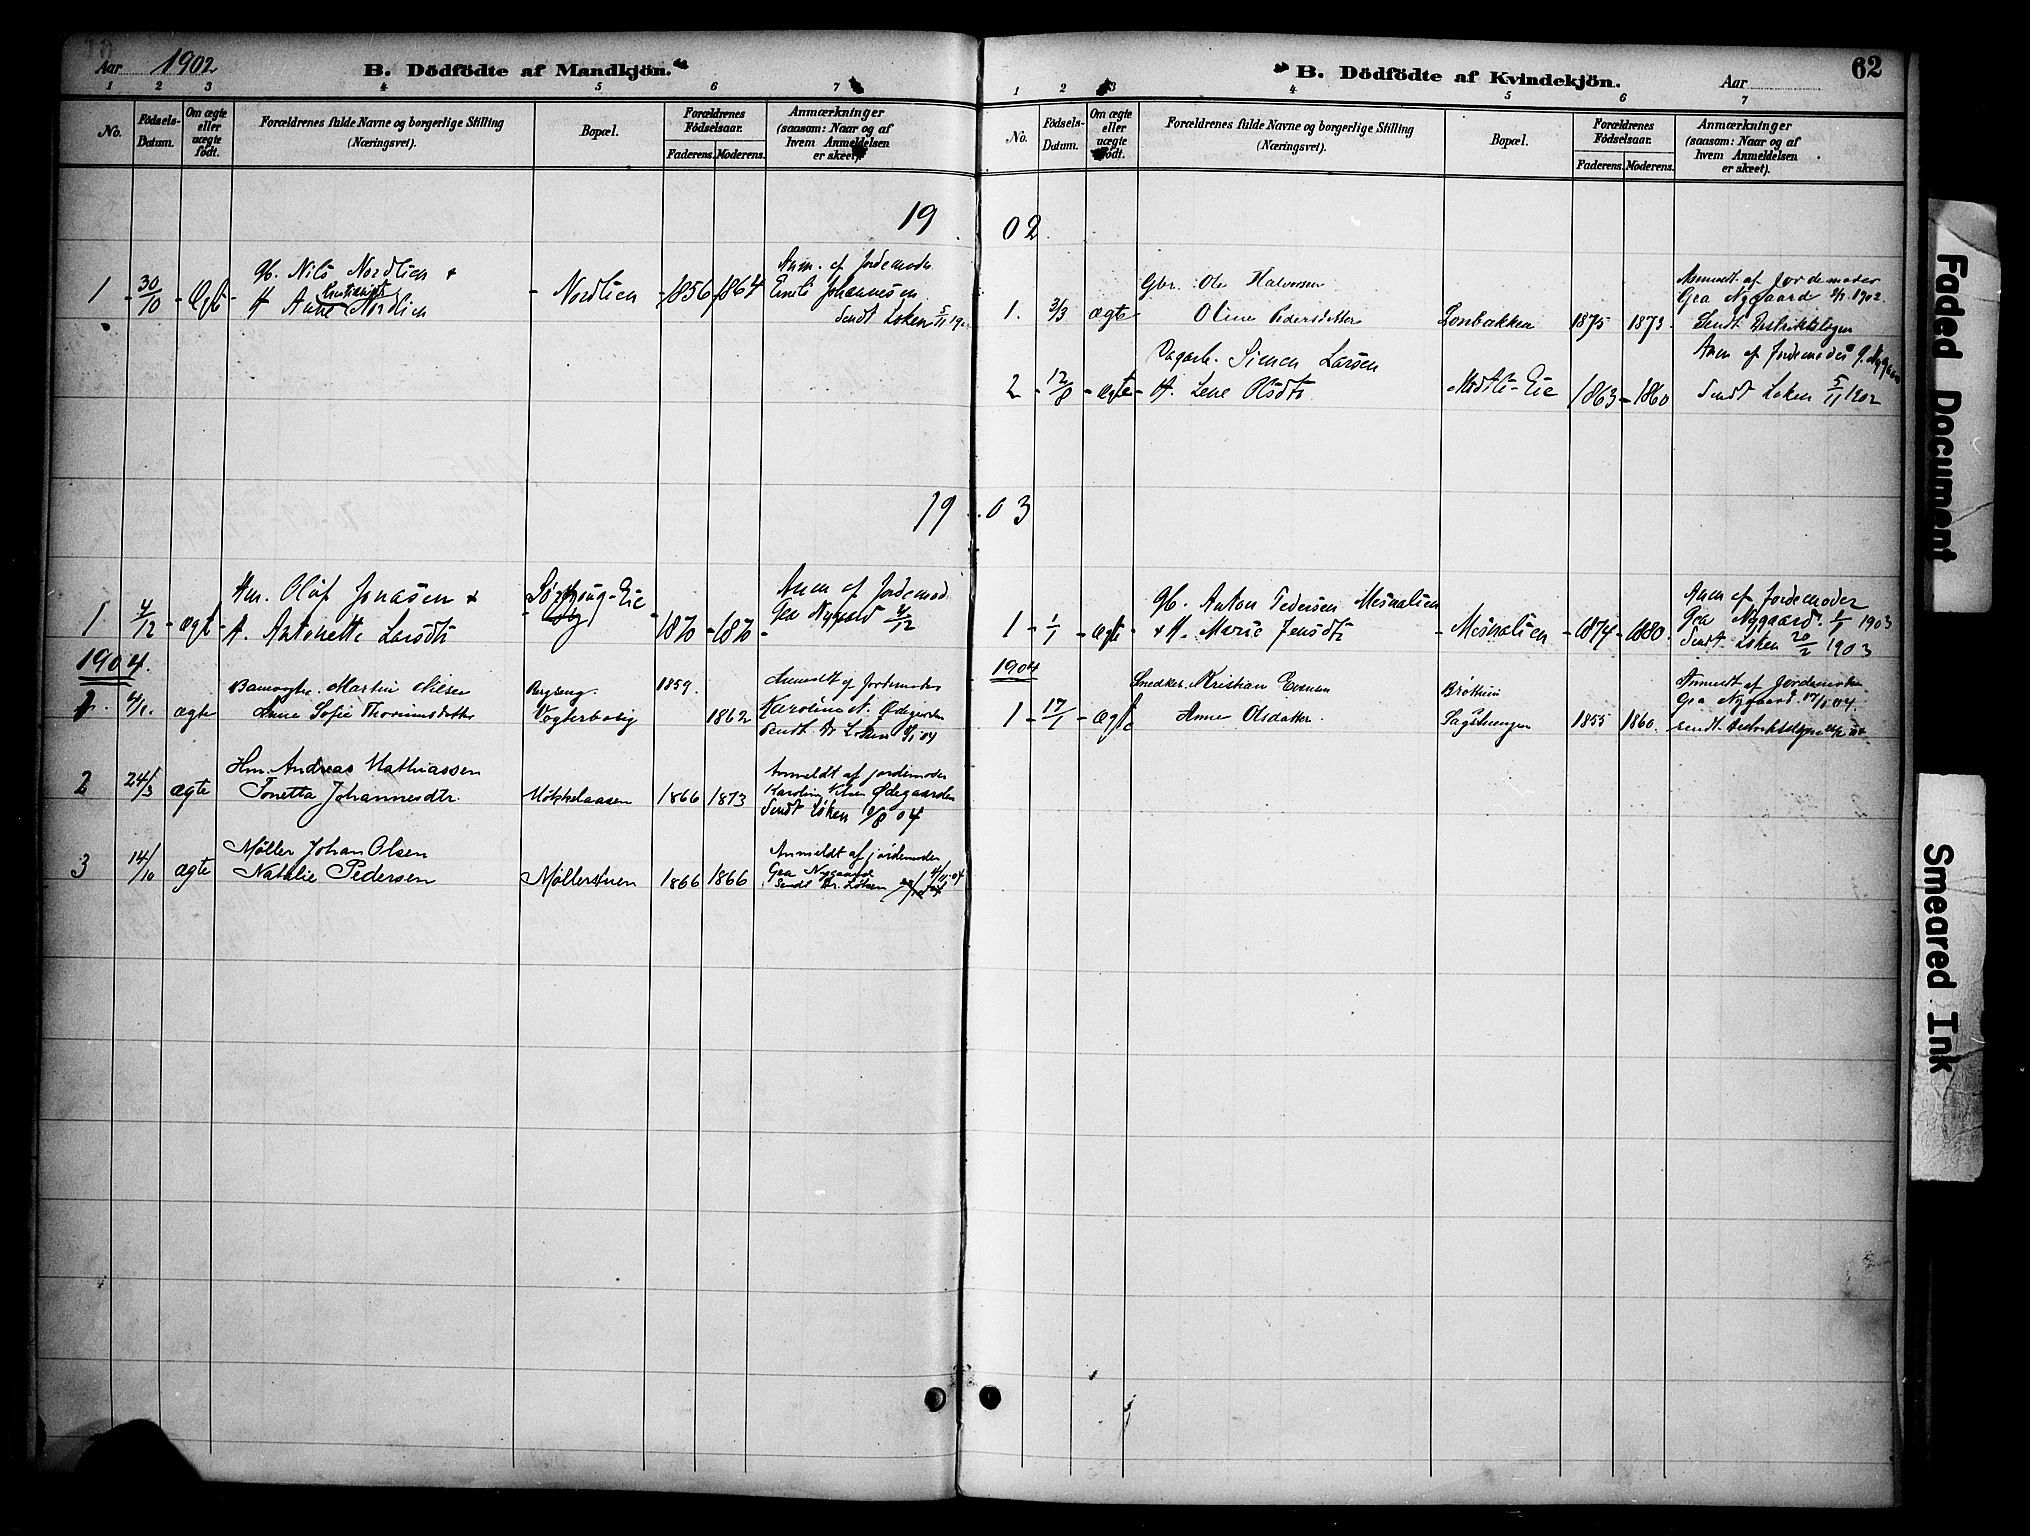 Aar 1902
B. Dödfödte af Mandkjön.
1 2 3 4 5 6 7
No.
Födsels-Datum.
Om ægte eller uægte födt.
Forældrenes fulde Navne og borgerlige Stilling
(Næringsvei).
Bopæl.
Forældrenes Fødselsaar.
Faderens. Moderens.
Anmærkninger
(saasom: Naar og af
hvem Anmeldelsen
er skeet).
19
1 30/10 Ægt
Nils Nordlien &
H Anne Nordlien
Nordlien 1856 1864
Anm. af Jordemoder
Johannesen
Sendt Løken 5/11
19
1 4/12 ægt
Hm. Olof Jonasen &
H. Antonette Larsdtr
Eie
1870 1870
Anm af Jordemod
Gea Nygaard 4/12
1904.
1. ægte
Martin Nilsen
Anne Sofie
Bergseng.
Vogterbolig
1859. 1862
Anmeldt af Jordemoder
Karoline N. Ødegaarden
Sendt Dr Løken
2 24/3 ægte
Hm. Andreas Mathiassen
Tonetta Johannesdtr.
1866 1873
Anmeldt af jordemoder
Ødegaarden
Sendt Løken 04
3 14/10 ægte
Møller Johan Olsen
Natalie Pedersen
Møllerstuen 1866 1866
Anmeldt af jordemoder
Gea Nygaard
Sendt Dr. Løken
62
B. Dödfödte af Kvindekjön.
Aar
1 2 3 4 5 6 7
No.
Födsels-Datum.
Om ægte eller uægte födt.
Forældrenes fulde Navne og borgerlige Stilling
(Næringsvei).
Bopæl.
Forældrenes Födselsaar.
Faderens. Moderens.
Anmærkninger
(saasom: Naar og af
hvem Anmeldelsen
er skeet).
02
1. 3/3 ægte
Gbr. Ole Halvorsen
Oline Pedersdatter
1875 1873.
Anmeldt af Jordemoder
Gea Nygaard 1902.
Sendt Distriktslægen
2 12/8 ægte
Dagarb. Simen Larsen
H. Lene Olsdtr
Eie 1863 1860
Anm af Jordemoder G. Nygaard
Sendt Løken 5/11 1902
03
1 1/1 ægte
Anton Pedersen Mesnalien
& H. Marie Jensdtr
Mesnalien 1874 1880.
Anm af Jordemoder
Gea Nygaard 1/1 1903
Sendt Løken 20/2 1903
1904
1 17/1 ægte
Snedker. Kristian Evensen
Anne Olsdatter.
Brøttum
1855 1860.
Anmeldt af Jordemoder
Gea Nygaard 17/1 04.
sendt
Faded Document
Smeared Ink